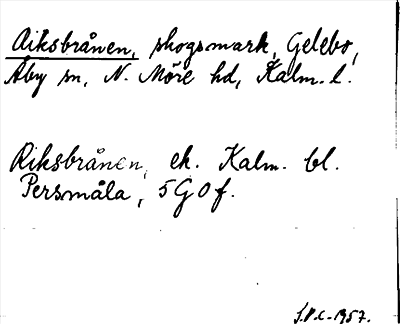 Riksbrånen, skogsmark, Gelebo,
Åby sn, N. Möre hd, Kalm. l.
Riksbrånen, ek. Kalm. bl.
Persmåla, 5G0f.
1957.